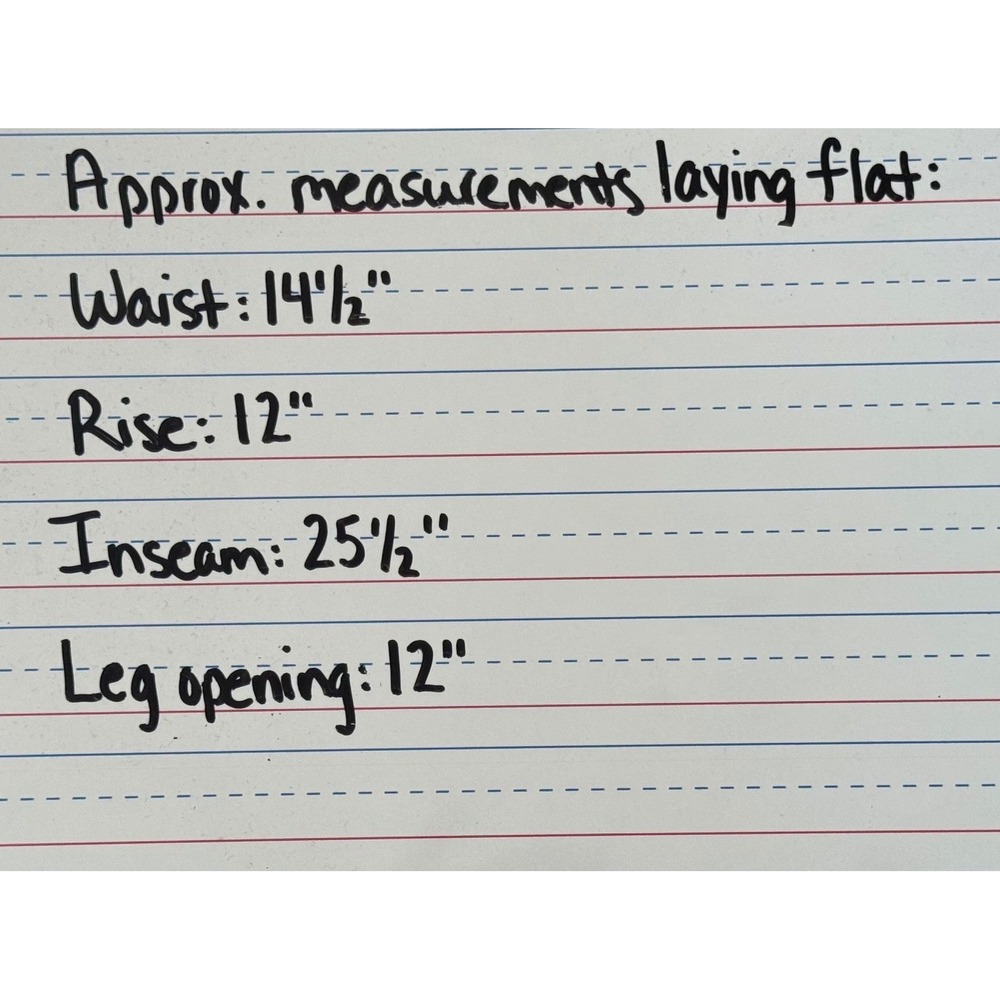 Approx. measurements laying flat:
Waist: 14 1/2"
Rise: 12"
Inseam: 25 1/2"
Leg opening: 12"